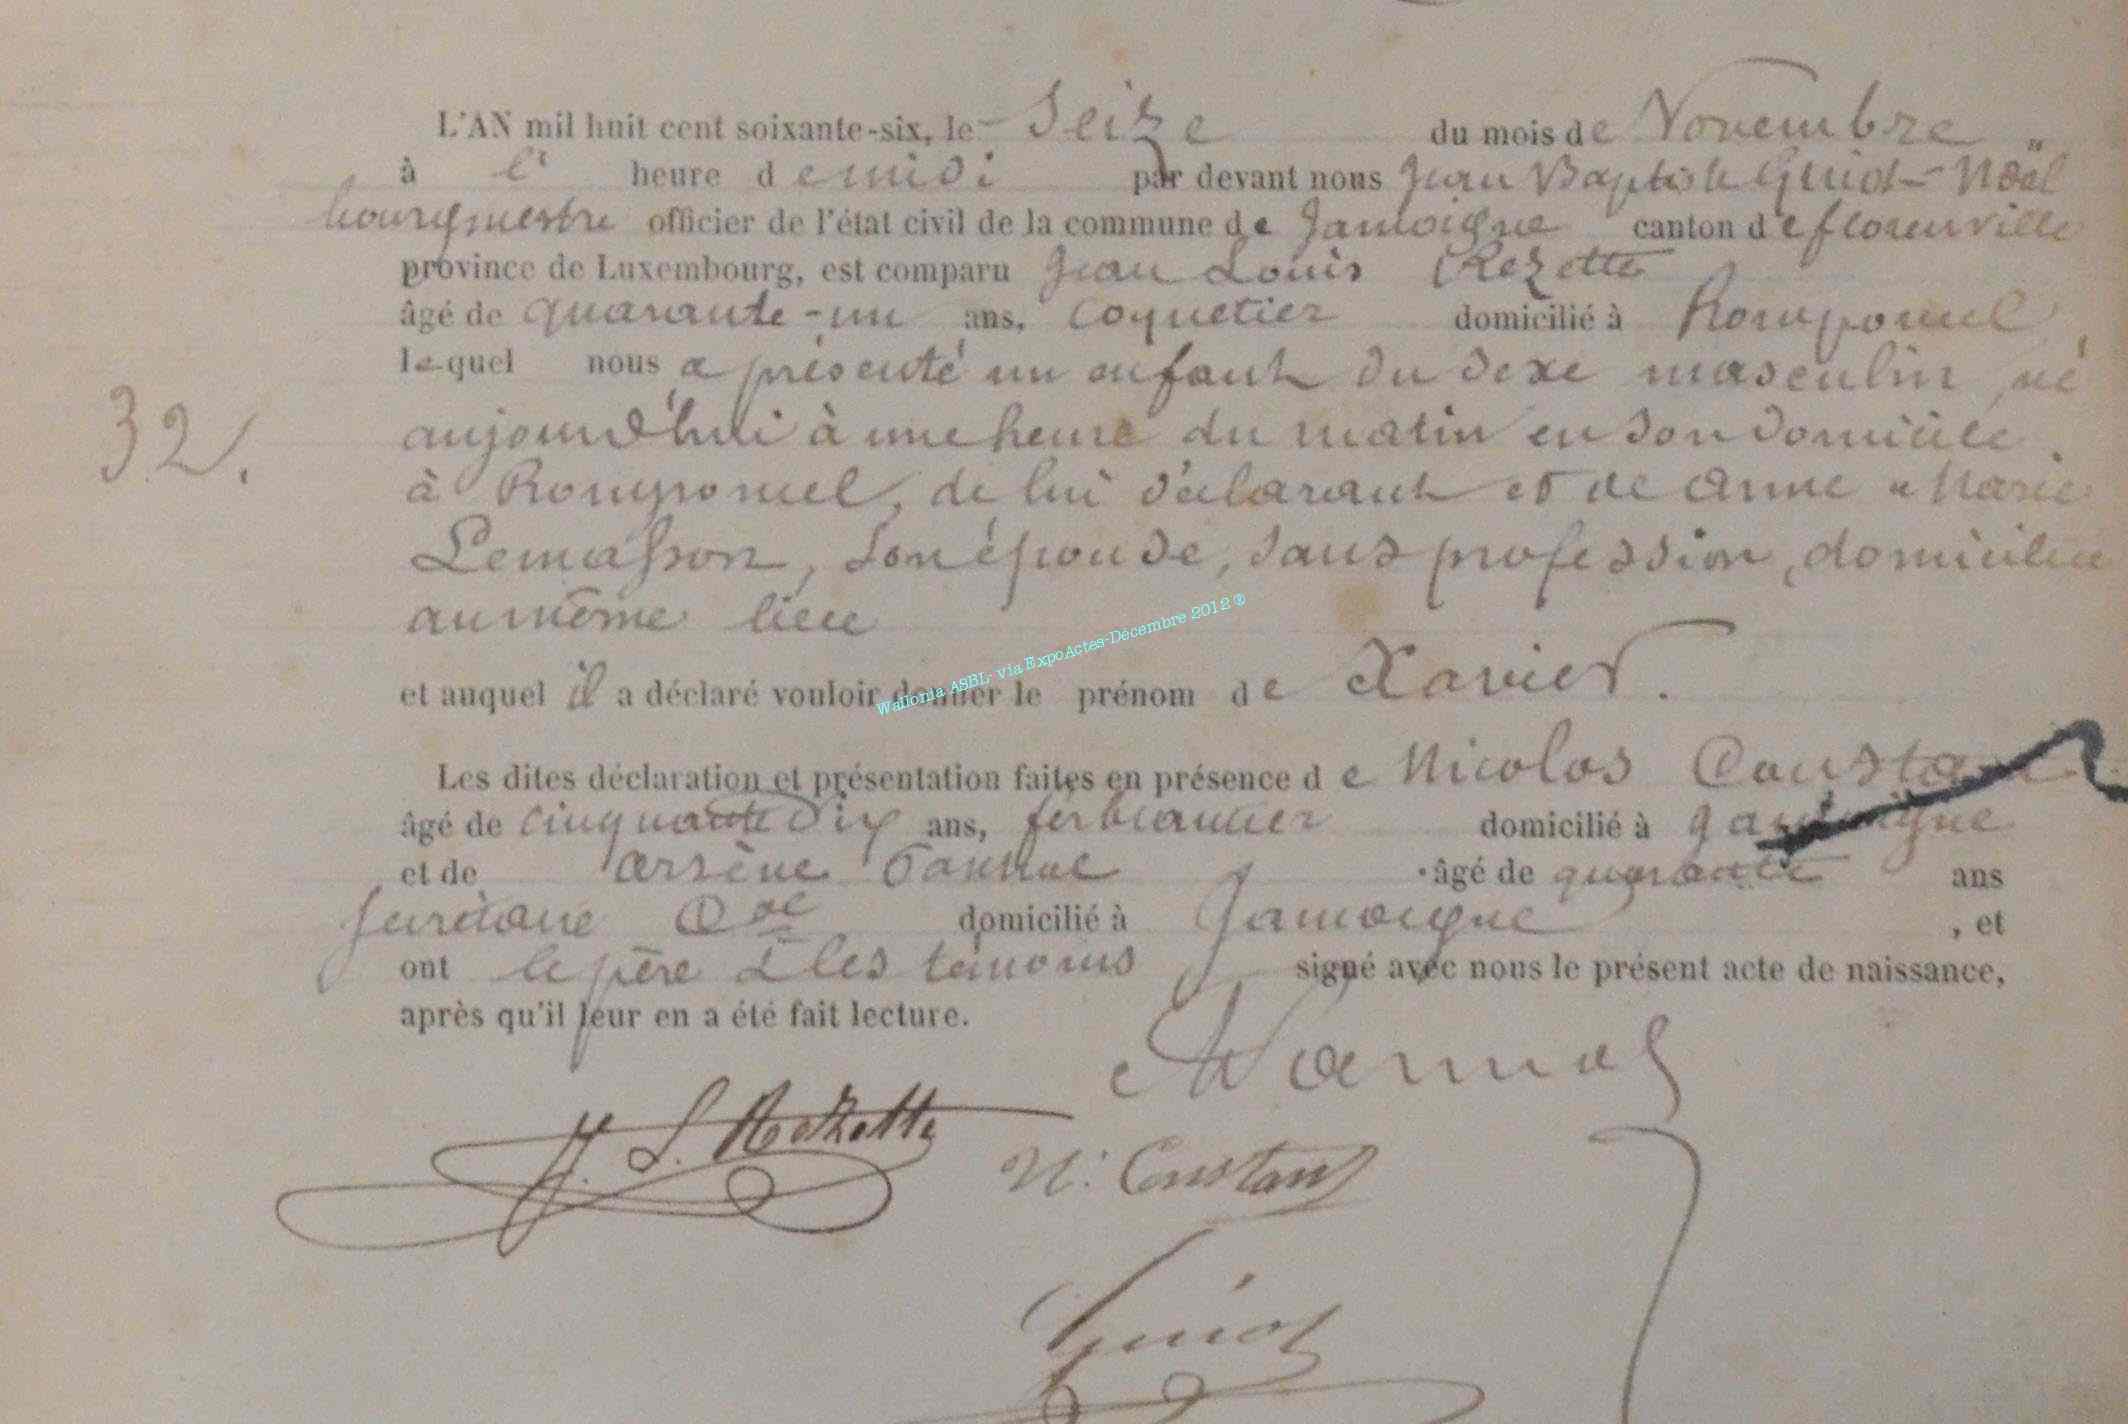 L'AN mil huit cent soixante-six, le Seize du mois de Novembre
à l' heure de midi par devant nous Jean Baptiste Guiot-Noël
bourgmestre officier de l'état civil de la commune de Jamoigne canton de florenville
province de Luxembourg, est comparu Jean Louis Rezette
âgé de quarante-un ans, Coquetier domicilié à Romponcel,
lequel nous a présenté un enfant du sexe masculin, né
32. aujourd'hui à une heure du matin en son domicile
à Romponcel, de lui déclarant et de Anne Marie
Lemasson, son épouse, sans profession, domiciliée
au même lieu
et auquel il a déclaré vouloir donner le prénom de Xavier.
Wallonia ASBL- via ExpoActes-Décembre 2012 ®
Les dites déclaration et présentation faites en présence de Nicolas Constant
âgé de cinquante dix ans, ferblantier domicilié à Jamoigne
et de Arsène âgé de quarante ans
domicilié à Jamoigne, et
ont le père & les témoins signé avec nous le présent acte de naissance,
après qu'il leur en a été fait lecture.
J. L. Rezette
N. Constant
Guiot